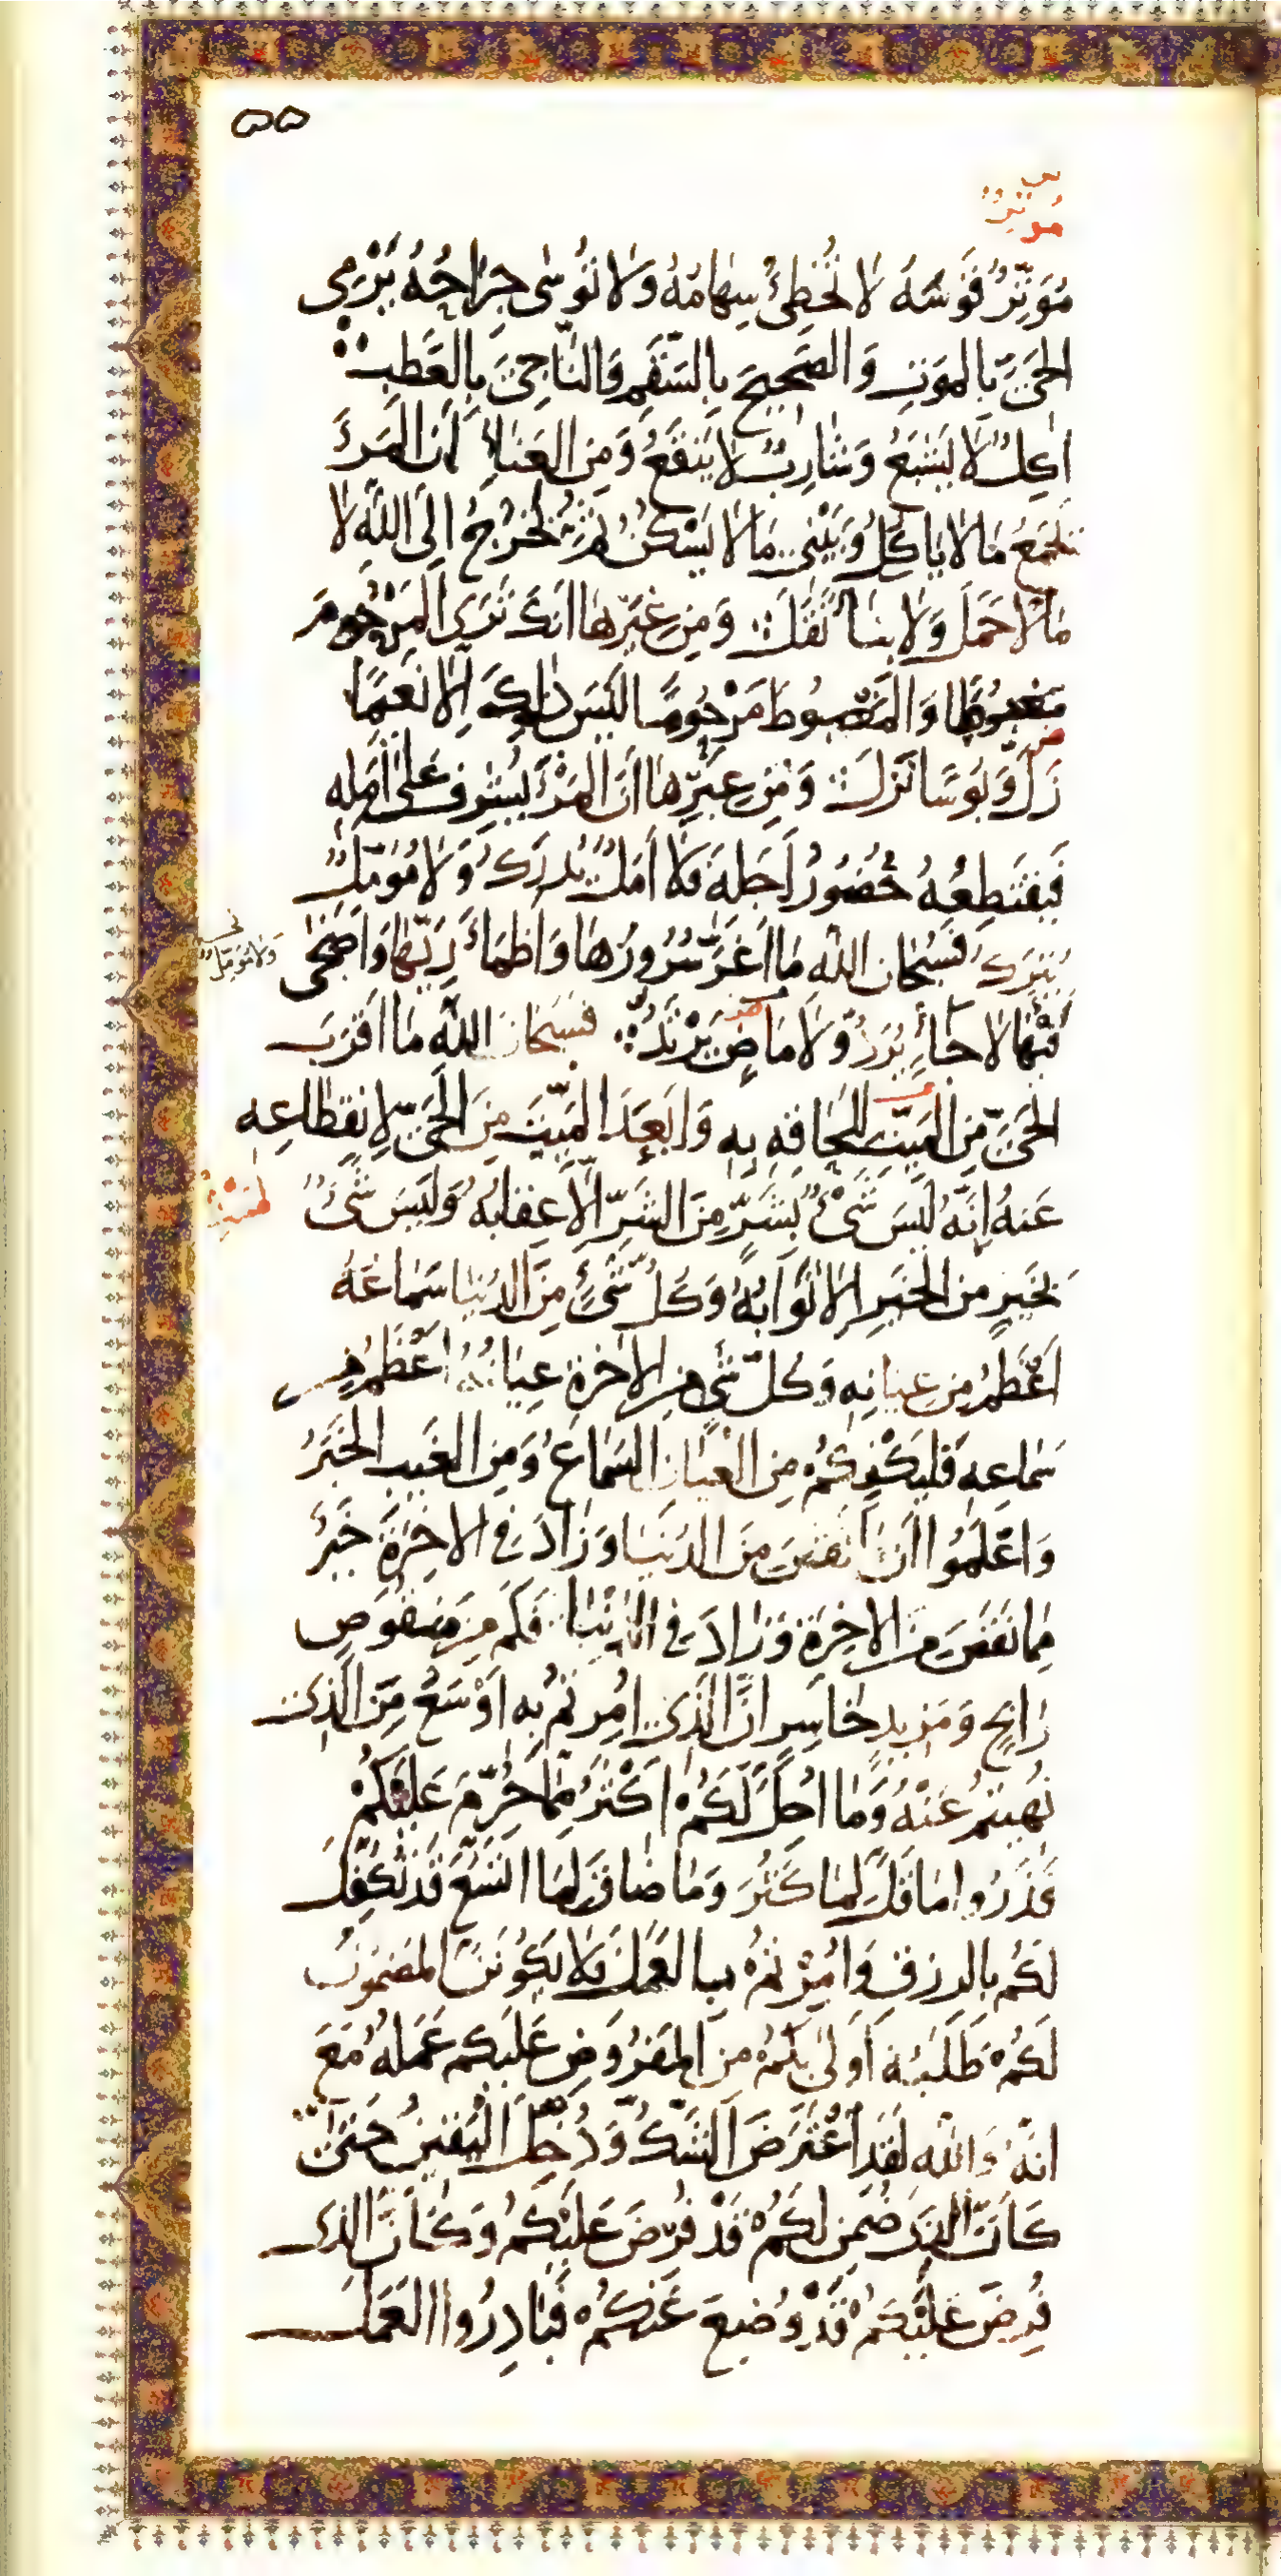 ٥٥
موتر
مُوَتِّرٌ قَوْسَهُ لَا تُخْطِئُ سِهَامُهُ وَلَا تُوسٰى جِرَاحُهُ يَرْمِى
الحَىَّ بِالمَوتِ وَالصَّحِيحَ بِالسَّقَمِ وَالنَّاجِىَ بِالعَطَبِ
اٰكِلٌ لَا يَشْبَعُ وَشَارِبٌ لَا يَنقَعُ وَمِنَ العَنَاءِ أَنَّ المَرءَ
يَجْمَعُ مَا لَا يَاكُلُ وَيَبْنِى مَا لَا يَسْكُنُ ثُمَّ يَخْرُجُ إِلَى اللّٰهِ لَا
مَالًا حَمَلَ وَلَا بِنَاءً نَقَلَ وَمِن غِيَرِهَا أَنَّكَ تَرَى المَرْحُومَ
مَغْبُوطًا وَالمَغْبُوطَ مَرْحُومًا لَيْسَ ذٰلِكَ إِلَّا نَعِيمًا
زَلَّ وَبُؤسًا نَزَلَ وَمِن عِبَرِهَا أَنَّ المَرْءَ يُشْرِفُ عَلٰى أَمَلِهِ
فَيَقْتَطِعُهُ حُضُورُ أَجَلِهِ فَلَا أَمَلٌ يُدْرَكُ وَلَا مُؤَمَّلٌ
ولا مؤمل
يُتْرَكُ فَسُبْحَانَ اللّٰهِ مَا أَغَرَّ سُرُورَهَا وَأَظْمَاءَ رِيَّهَا وَأَضْحٰى
فَيْئَهَا لَا جَاءٍ يُرَدُّ وَلَا مَاضٍ يَرْتَدُّ فَسُبْحَانَ اللّٰهِ مَا أَقْرَبَ
الحَىَّ مِنَ المَيِّتِ لِلَحَاقِهِ بِهِ وَأَبْعَدَ المَيِّتَ مِنَ الحَىِّ لِانقِطَاعِهِ
عَنهُ إِنَّهُ لَيْسَ شَىْءٌ بِشَرٍّ مِنَ الشَّرِّ إِلَّا عِقَابُهُ وَلَيْسَ شَىْءٌ
بِخَيْرٍ مِنَ الخَيْرِ إِلَّا ثَوَابُهُ وَكُلُّ شَىْءٍ مِنَ الدُّنْيَا سَمَاعُهُ
أَعْظَمُ مِن عِيَانِهِ وَكُلُّ شَىْءٍ مِنَ الاٰخِرَةِ عِيَانُهُ أَعْظَمُ مِن
سَمَاعِهِ فَليَكْفِكُمْ مِنَ العِيَانِ السَّمَاعُ وَمِنَ الغَيْبِ الخَبَرُ
وَاعْلَمُوا أَنَّ مَا نَقَصَ مِنَ الدُّنْيَا وَزَادَ فِى الاٰخِرَةِ خَيْرٌ
مِمَّا نَقَصَ مِنَ الاٰخِرَةِ وَزَادَ فِى الدُّنْيَا فَكَم مِن مَنقُوصٍ
رَابِحٍ وَمَزِيدٍ خَاسِرٍ إِنَّ الَّذِى أُمِرتُم بِهِ أَوْسَعُ مِنَ الَّذِى
نُهِيتُم عَنْهُ وَمَا أُحِلَّ لَكُمْ أَكْثَرُ مِمَّا حُرِّمَ عَلَيْكُمْ
فَذَرُوا مَا قَلَّ لِمَا كَثُرَ وَمَا ضَاقَ لِمَا اتَّسَعَ قَد تُكُفِّلَ
لَكُم بِالرِّزقِ وَأُمِرْتُم بِالعَمَلِ فَلَا يَكُونَنَّ المَضمُونُ
لَكُمْ طَلَبُهُ أَوْلٰى بِكُمْ مِنَ المَفْرُوضِ عَلَيْكُم عَمَلُهُ مَعَ
أَنَّهُ وَاللّٰهِ لَقَد اعْتَرَضَ الشَّكُّ وَدَخِلَ اليَقِينُ حَتّٰى
كَأَنَّ الَّذِى ضُمِنَ لَكُمْ قَدْ فُرِضَ عَلَيْكُمْ وَكَأَنَّ الَّذِى
فُرِضَ عَلَيْكُمْ قَدْ وُضِعَ عَنْكُمْ فَبَادِرُوا العَمَلَ